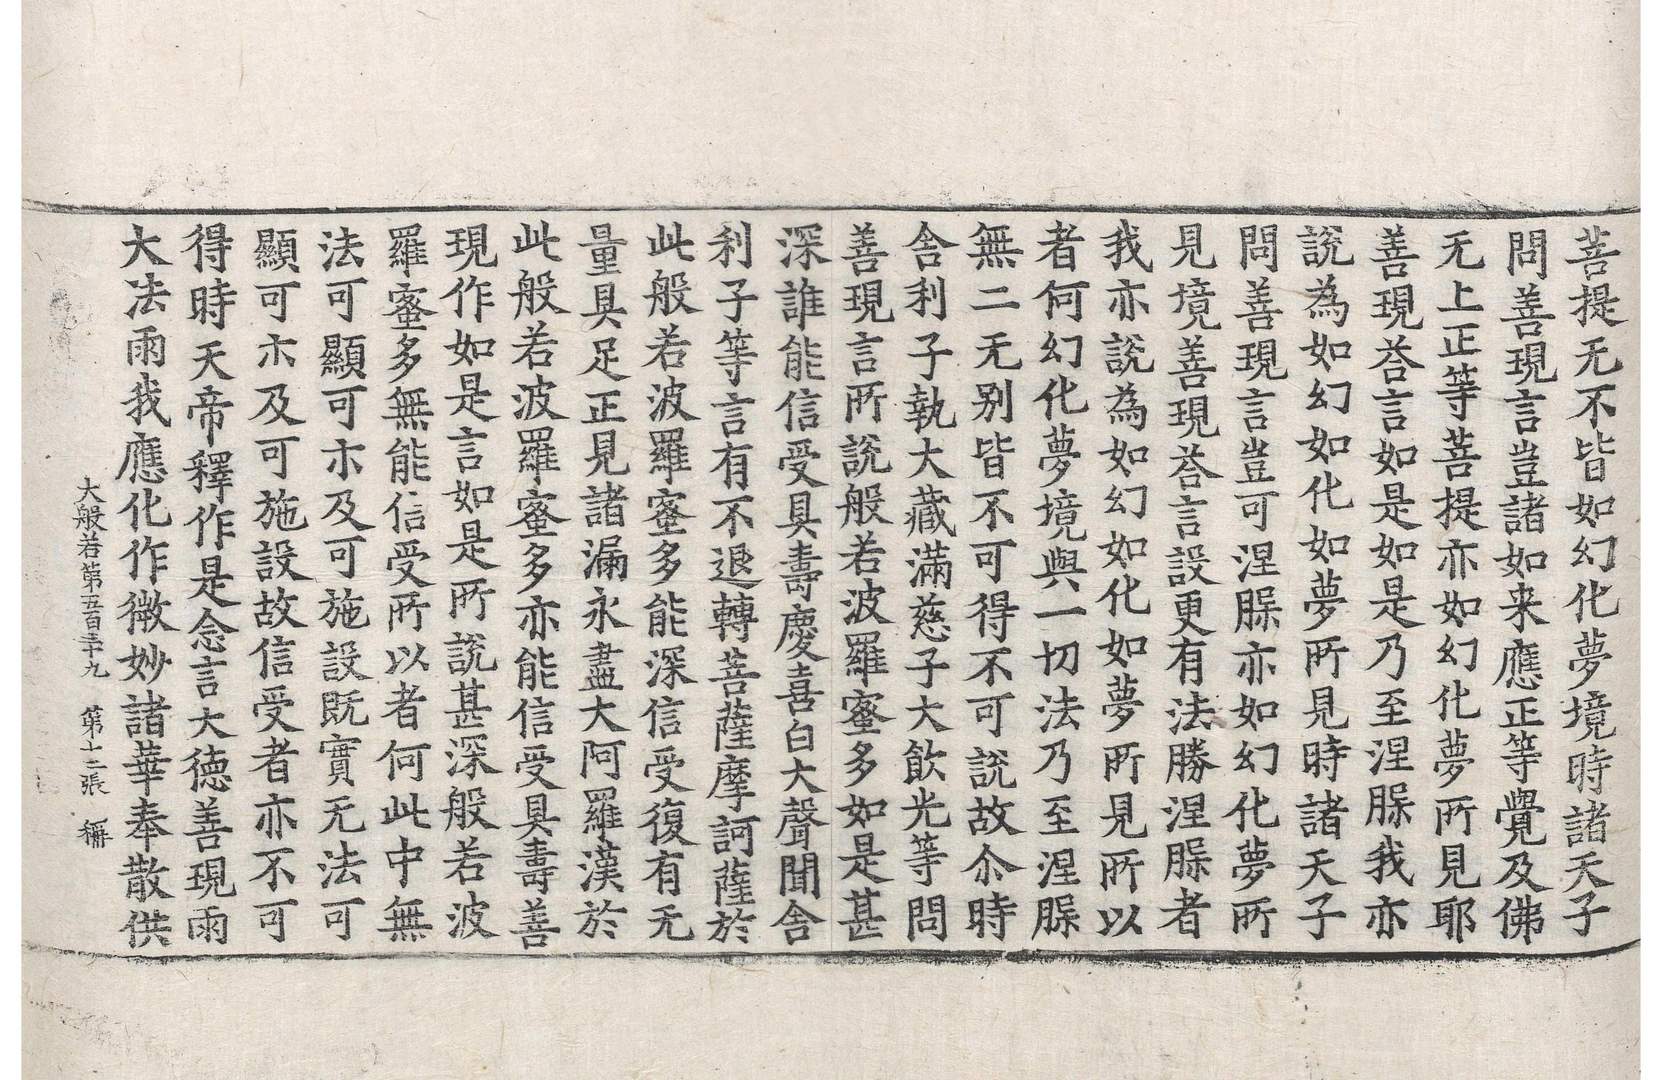 菩提无不皆如幻化夢境時諸天子
問善現言豈諸如来應正等覺及佛
无上正等菩提亦如幻化夢所見耶
善現荅言如是如是乃至涅䏶我亦
說為如幻如化如夢所見時諸天子
問善現言豈可涅䏶亦如幻化夢所
見境善現荅言設更有法勝涅䏶者
我亦說為如幻如化如夢所見所以
者何幻化夢境與一切法乃至涅䏶
無二无别皆不可得不可説故尒時
舍利子執大藏滿慈子大飲光等問
善現言所說般若波羅蜜多如是甚
深誰能信受具壽慶喜白大聲聞舍
利子等言有不退轉菩薩摩訶薩於
此般若波羅蜜多能深信受復有无
量具足正見諸漏永盡大阿羅漢於
此般若波羅蜜多亦能信受具壽善
現作如是言如是所說甚深般若波
羅蜜多無能信受所以者何此中無
法可顯可示及可施設既實无法可
顯可示及可施設故信受者亦不可
得時天帝釋作是念言大德善現雨
大法雨我應化作微妙諸華奉散供
大般若第五百三十九 第十二張 稱